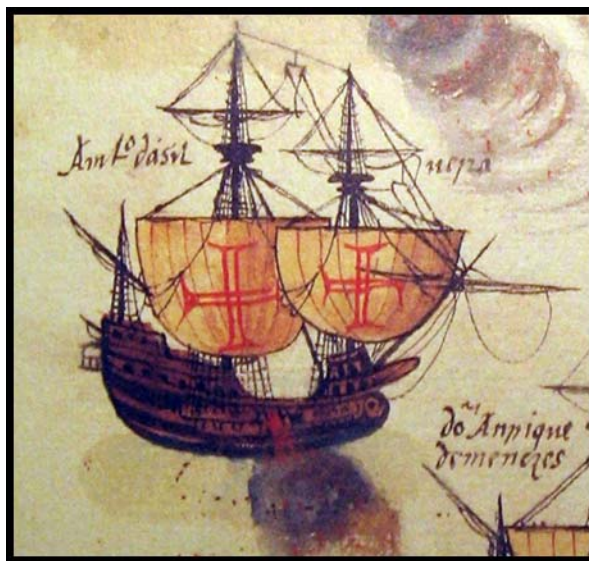 Amtº dasil ueyra
dõ Anrique
demenezes